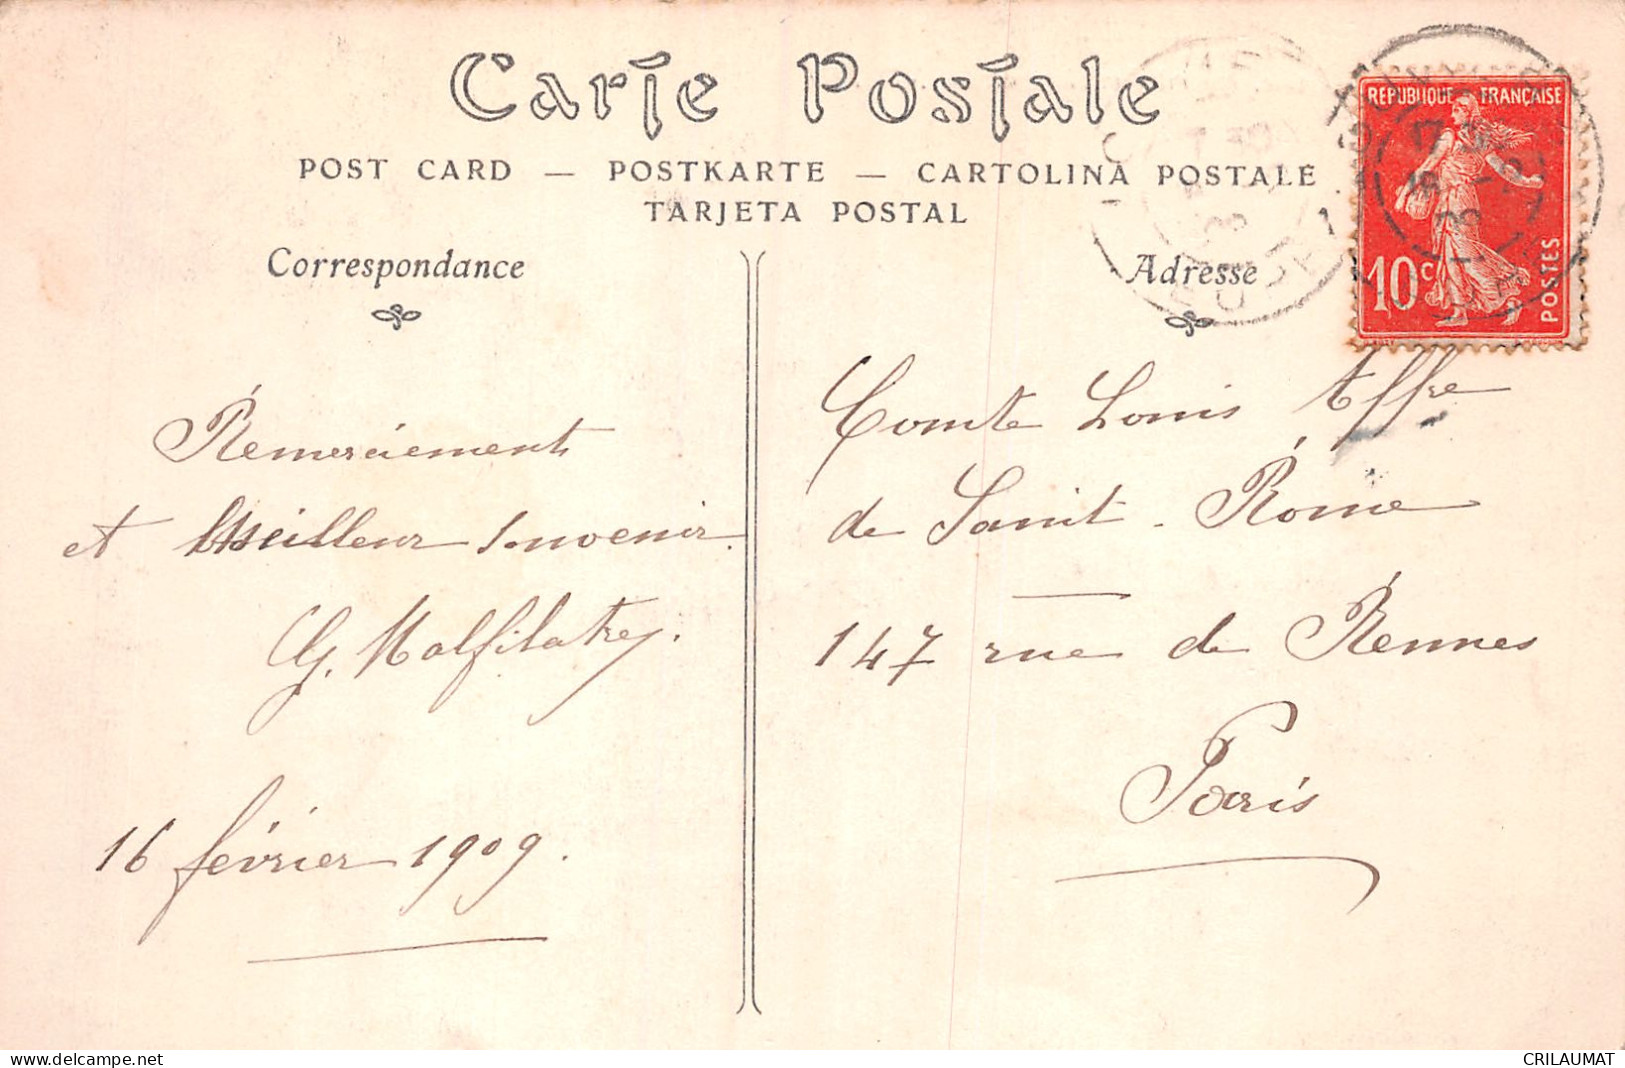 Carte Postale
POST CARD — POSTKARTE — CARTOLINA POSTALE
TARJETA POSTAL
Correspondance
Remerciement
et Meilleur Souvenir.
G. Malfilatrey.
16 février 1909.
Adresse
REPUBLIQUE FRANÇAISE
10c
POSTES
Comte Louis Affre
de Saint-Rome
147 rue de Rennes
Paris
www.delcampe.net
CRILAUMAT